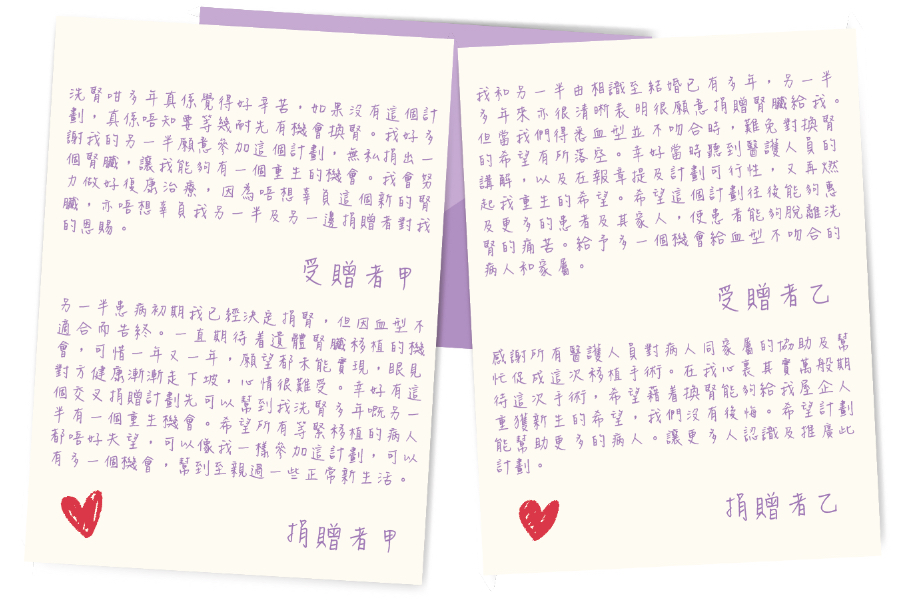 洗腎咁多年真係覺得好辛苦，如果沒有這個計
劃，真係唔知要等幾耐先有機會換腎。我好多
謝我的另一半願意參加這個計劃，無私捐出一
個腎臟，讓我能夠有一個重生的機會。我會努
力做好復康治療，因為唔想辜負這個新的腎
臟，亦唔想辜負我另一半及另一邊捐贈者對我
的恩賜。
受贈者甲
另一半患病初期我已經決定捐腎，但因血型不
適合而告終。一直期待着遺體腎臟移植的機
會，可惜一年又一年，願望都未能實現，眼見
對方健康漸漸走下坡，心情很難受。幸好有這
個交叉捐贈計劃先可以幫到我洗腎多年嘅另一
半有一個重生機會。希望所有等緊移植的病人
都唔好失望，可以像我一樣參加這計劃，可以
有多一個機會，幫到至親過一些正常新生活。
捐贈者甲
我和另一半由相識至結婚已有多年，另一半
多年來亦很清晰表明很願意捐贈腎臟給我。
但當我們得悉血型並不吻合時，難免對換腎
的希望有所落空。幸好當時聽到醫護人員的
講解，以及在報章提及計劃可行性，又再燃
起我重生的希望。希望這個計劃往後能夠惠
及更多的患者及其家人，使患者能夠脫離洗
腎的痛苦。給予多一個機會給血型不吻合的
病人和家屬。
受贈者乙
感謝所有醫護人員對病人同家屬的協助及幫
忙促成這次移植手術。在我心裏其實萬般期
待這次手術，希望藉着換腎能夠給我屋企人
重獲新生的希望，我們沒有後悔。希望計劃
能幫助更多的病人。讓更多人認識及推廣此
計劃。
捐贈者乙